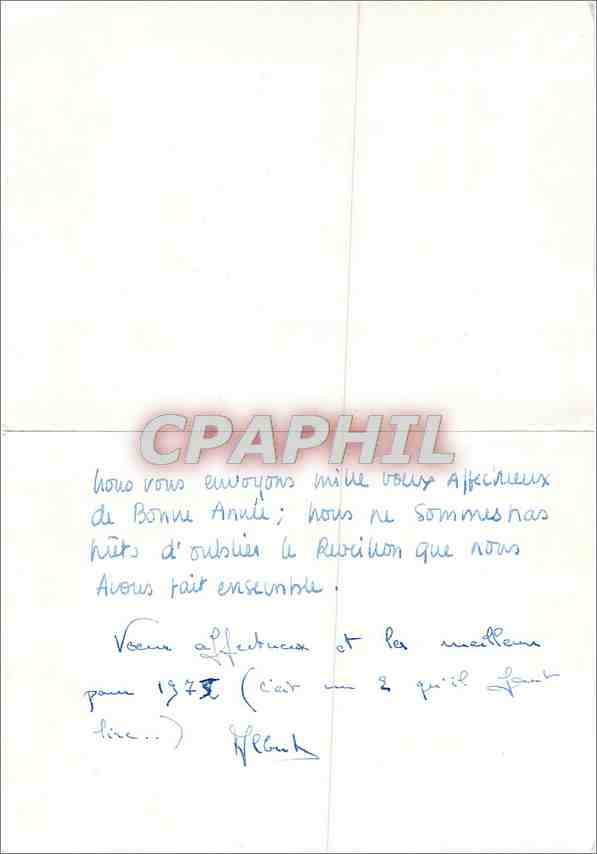 CPAPHIL
Nous vous envoyons mille voeux Affectueux
de Bonne Année; nous ne sommes pas
prêts d'oublier le Reveillon que nous
Avons fait ensemble.
Voeux affectueux et les meilleurs
pour 1972 (c'est un 2 qu'il faut
lire..)
Albert